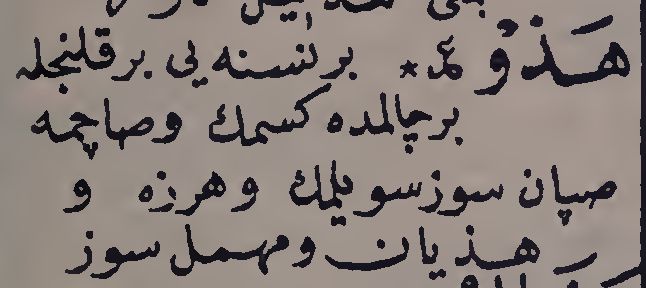 هَذْوٌ عـ * برنسنه يى برقلنجله
برچالمده كسمك وصاچمه
صپان سوزسويلمك وهرزه و
هذيان ومهمل سوز